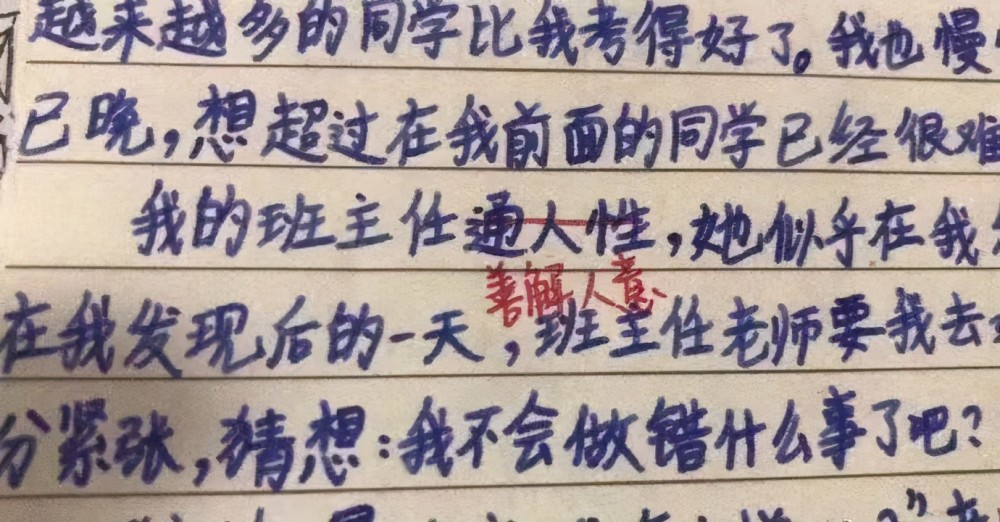 越来越多的同学比我考得好了。我也慢
已晚，想超过在我前面的同学已经很难
我的班主任通人性，她似乎在我
善解人意
在我发现后的一天，班主任老师要我去
分紧张，猜想：我不会做错什么事了吧？